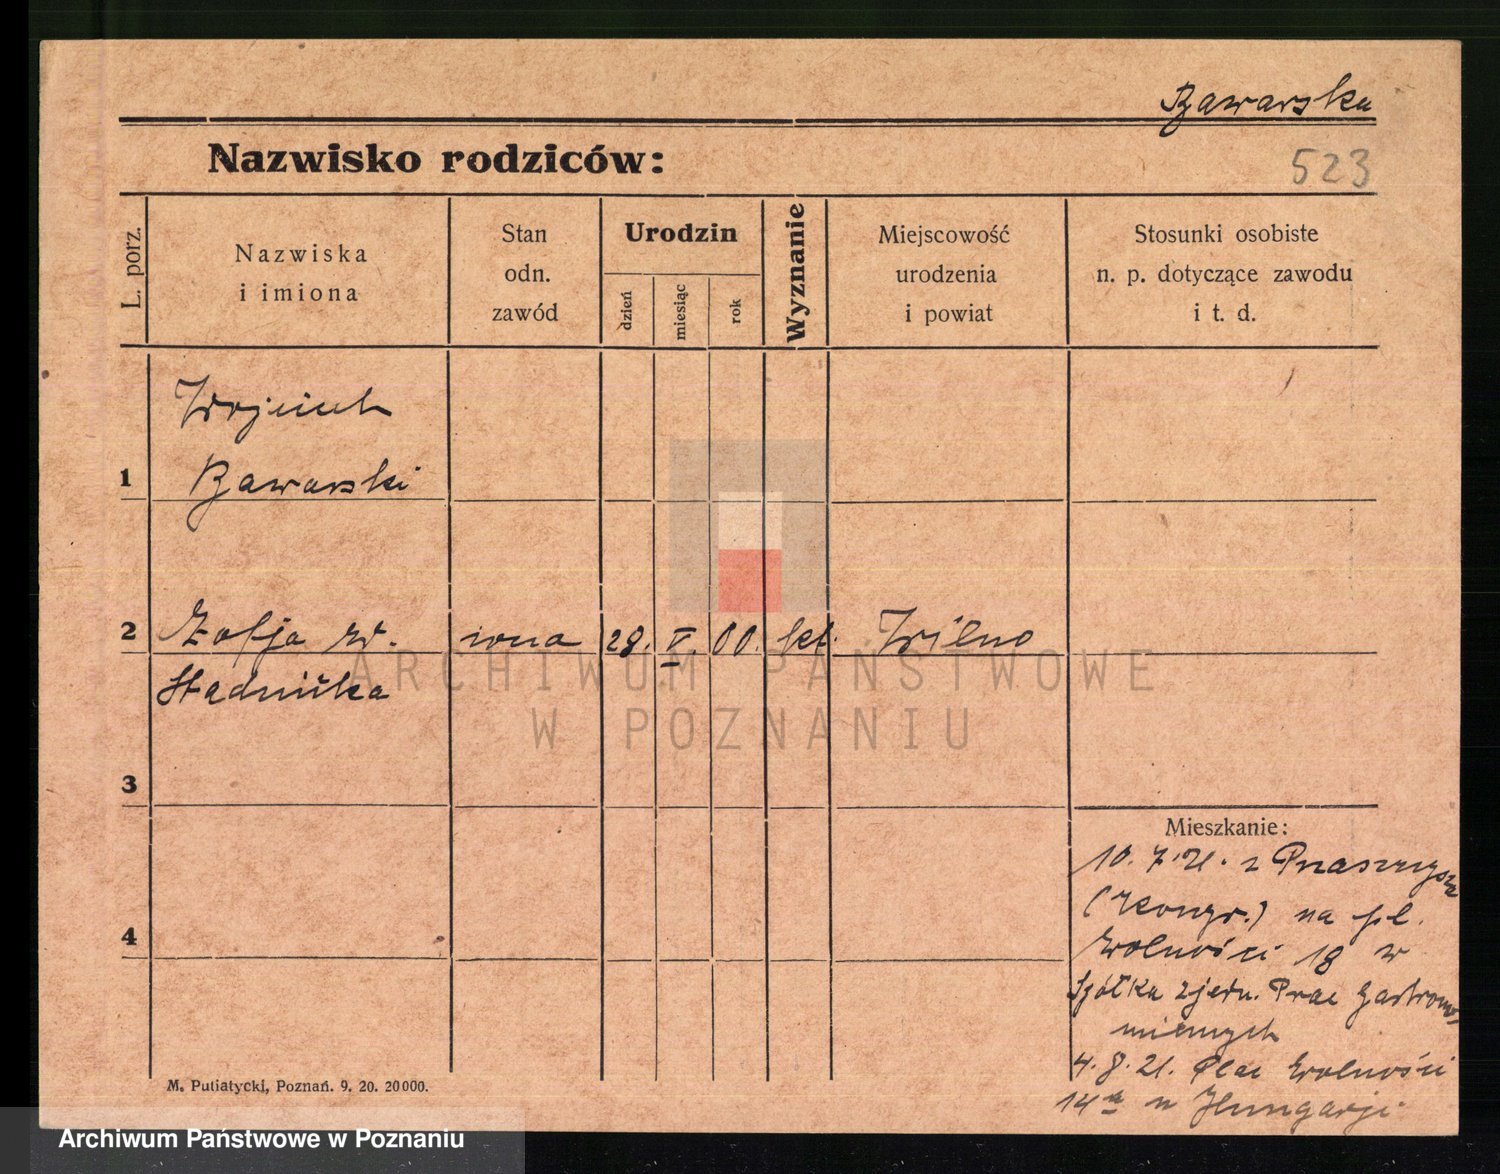 Bawarska
Nazwisko rodziców:
523
L. porz.
Nazwiska
i imiona
Stan
odn.
zawód
Urodzin
dzień
miesiąc
rok
Wyznanie
Miejscowość
urodzenia
i powiat
Stosunki osobiste
n. p. dotyczące zawodu
i t. d.
Wojciech
1 Bawarski
2 Zofja w. żona 28. V. 00. kt. Wilno
3
Mieszkanie:
10. 7. 21. z Przasnysza
(Kongr.) na pl.
Wolności 18 w
Spółka zjedn. Prac Gastrono-
micznych
4. 8. 21. Plac Wolności
14a u Hungarji
4
M. Putiatycki, Poznań. 9. 20. 20000.
ARCHIWUM PAŃSTWOWE
W POZNANIU
Archiwum Państwowe w Poznaniu